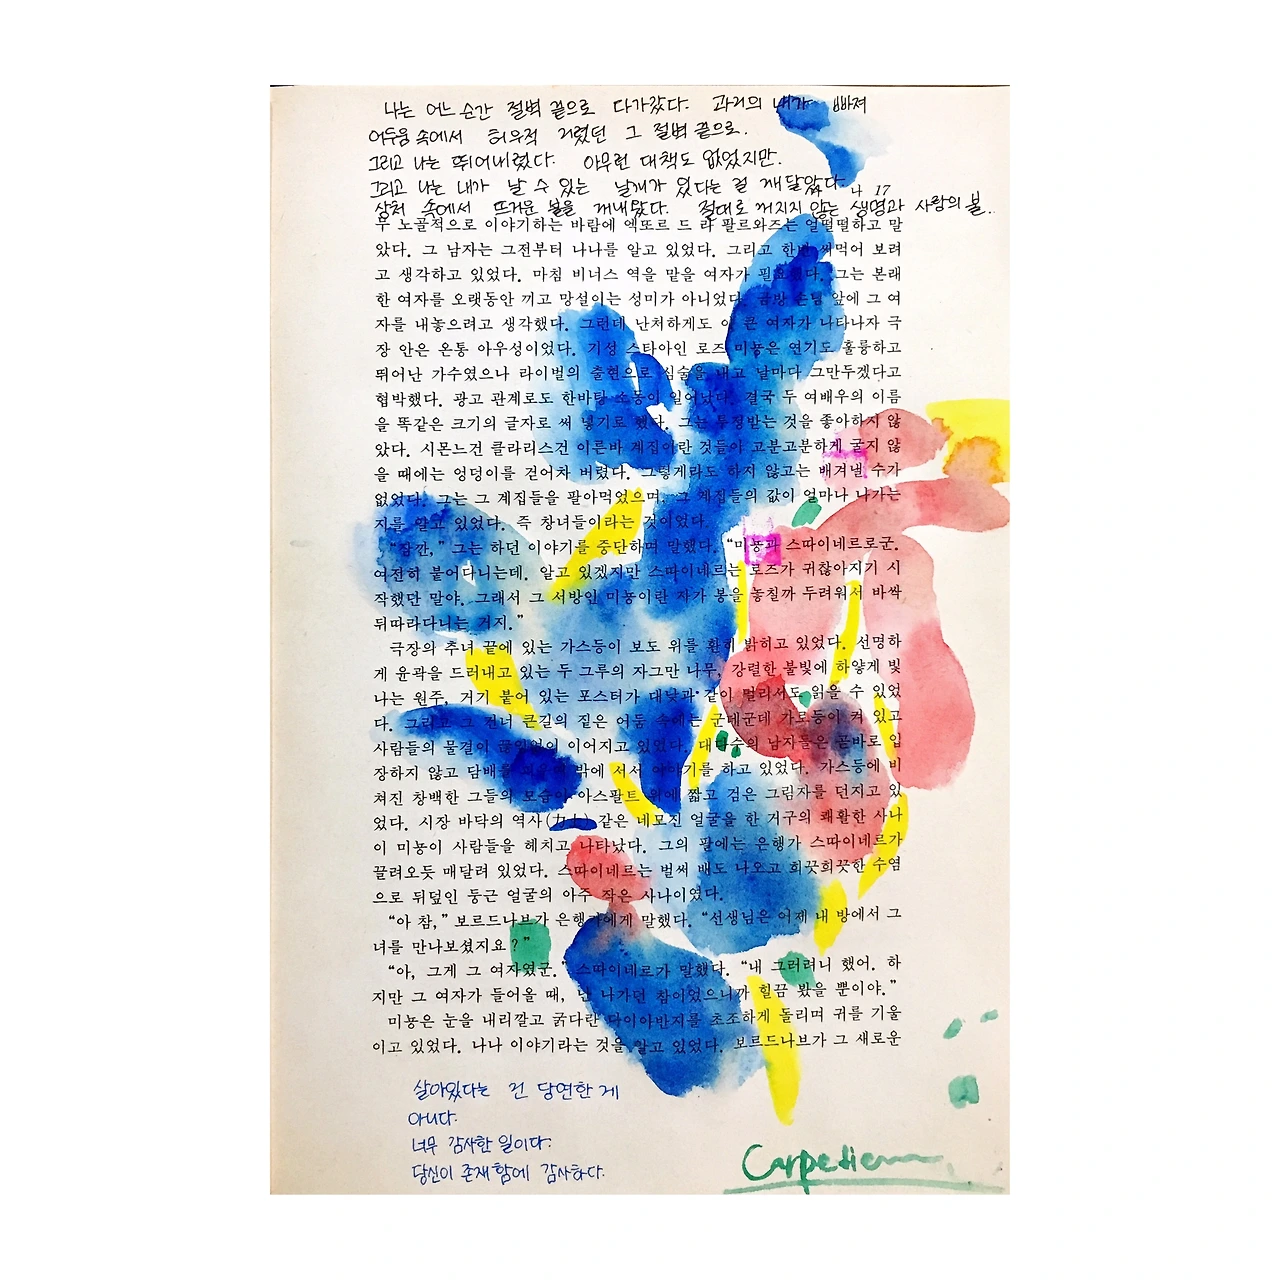 나는 어느 순간 절벽 끝으로 다가갔다. 과거의 내가 빠져
어두움 속에서 허우적 거렸던 그 절벽 끝으로.
그리고 나는 뛰어내렸다. 아무런 대책도 없었지만.
그리고 나는 내가 날 수 있는 날개가 있다는 걸 깨달았다.
4 17
상처 속에서 뜨거운 불을 꺼내왔다. 절대로 꺼지지 않는 생명과 사랑의 불..
무 노골적으로 이야기하는 바람에 엑또르 드 라 팔르와즈는 얼떨떨하고 말
았다. 그 남자는 그전부터 나나를 알고 있었다. 그리고 한번 써먹어 보려
고 생각하고 있었다. 마침 비너스 역을 맡을 여자가 필요했다. 그는 본래
한 여자를 오랫동안 끼고 망설이는 성미가 아니었다. 금방 손님 앞에 그 여
자를 내놓으려고 생각했다. 그런데 난처하게도 이 큰 여자가 나타나자 극
장 안은 온통 아우성이었다. 기성 스타아인 로즈 미뇽은 연기도 훌륭하고
뛰어난 가수였으나 라이벌의 출현으로 심술을 내고 날마다 그만두겠다고
협박했다. 광고 관계로도 한바탕 소동이 일어났다. 결국 두 여배우의 이름
을 똑같은 크기의 글자로 써 넣기로 했다. 그는 투정받는 것을 좋아하지 않
았다. 시몬느건 클라리스건 이른바 계집아란 것들이 고분고분하게 굴지 않
을 때에는 엉덩이를 걷어차 버렸다. 그렇게라도 하지 않고는 배겨낼 수가
없었다. 그는 그 계집들을 팔아먹었으며, 그 계집들의 값이 얼마나 나가는
지를 알고 있었다. 즉 창녀들이라는 것이었다.
“잠깐,” 그는 하던 이야기를 중단하며 말했다. “미뇽과 스따이네르로군.
여전히 붙어다니는데. 알고 있겠지만 스따이네르는 로즈가 귀찮아지기 시
작했단 말야. 그래서 그 서방인 미뇽이란 자가 봉을 놓칠까 두려워서 바싹
뒤따라다니는 거지.”
극장의 추녀 끝에 있는 가스등이 보도 위를 환히 밝히고 있었다. 선명하
게 윤곽을 드러내고 있는 두 그루의 자그만 나무, 강렬한 불빛에 하얗게 빛
나는 원주, 거기 붙어 있는 포스터가 대낮과 같이 멀리서도 읽을 수 있었
다. 그리고 그 건너 큰길의 짙은 어둠 속에는 군데군데 가로등이 켜 있고
사람들의 물결이 끊임없이 이어지고 있었다. 대다수의 남자들은 곧바로 입
장하지 않고 담배를 피우며 밖에 서서 이야기를 하고 있었다. 가스등에 비
쳐진 창백한 그들의 모습이 아스팔트 위에 짧고 검은 그림자를 던지고 있
었다. 시장 바닥의 역사(力士) 같은 네모진 얼굴을 한 거구의 쾌활한 사나
이 미뇽이 사람들을 헤치고 나타났다. 그의 팔에는 은행가 스따이네르가
끌려오듯 매달려 있었다. 스따이네르는 벌써 배도 나오고 희끗희끗한 수염
으로 뒤덮인 둥근 얼굴의 아주 작은 사나이였다.
“아 참,” 보르드나브가 은행가에게 말했다. “선생님은 어제 내 방에서 그
녀를 만나보셨지요?”
“아, 그게 그 여자였군.” 스따이네르가 말했다. “내 그러려니 했어. 하
지만 그 여자가 들어올 때, 난 나가던 참이었으니까 힐끔 봤을 뿐이야.”
미뇽은 눈을 내리깔고 굵다란 다이아반지를 초조하게 돌리며 귀를 기울
이고 있었다. 나나 이야기라는 것을 알고 있었다. 보르드나브가 그 새로운
살아있다는 건 당연한 게
아니다.
너무 감사한 일이다.
당신이 존재함에 감사하다.
Carpediem